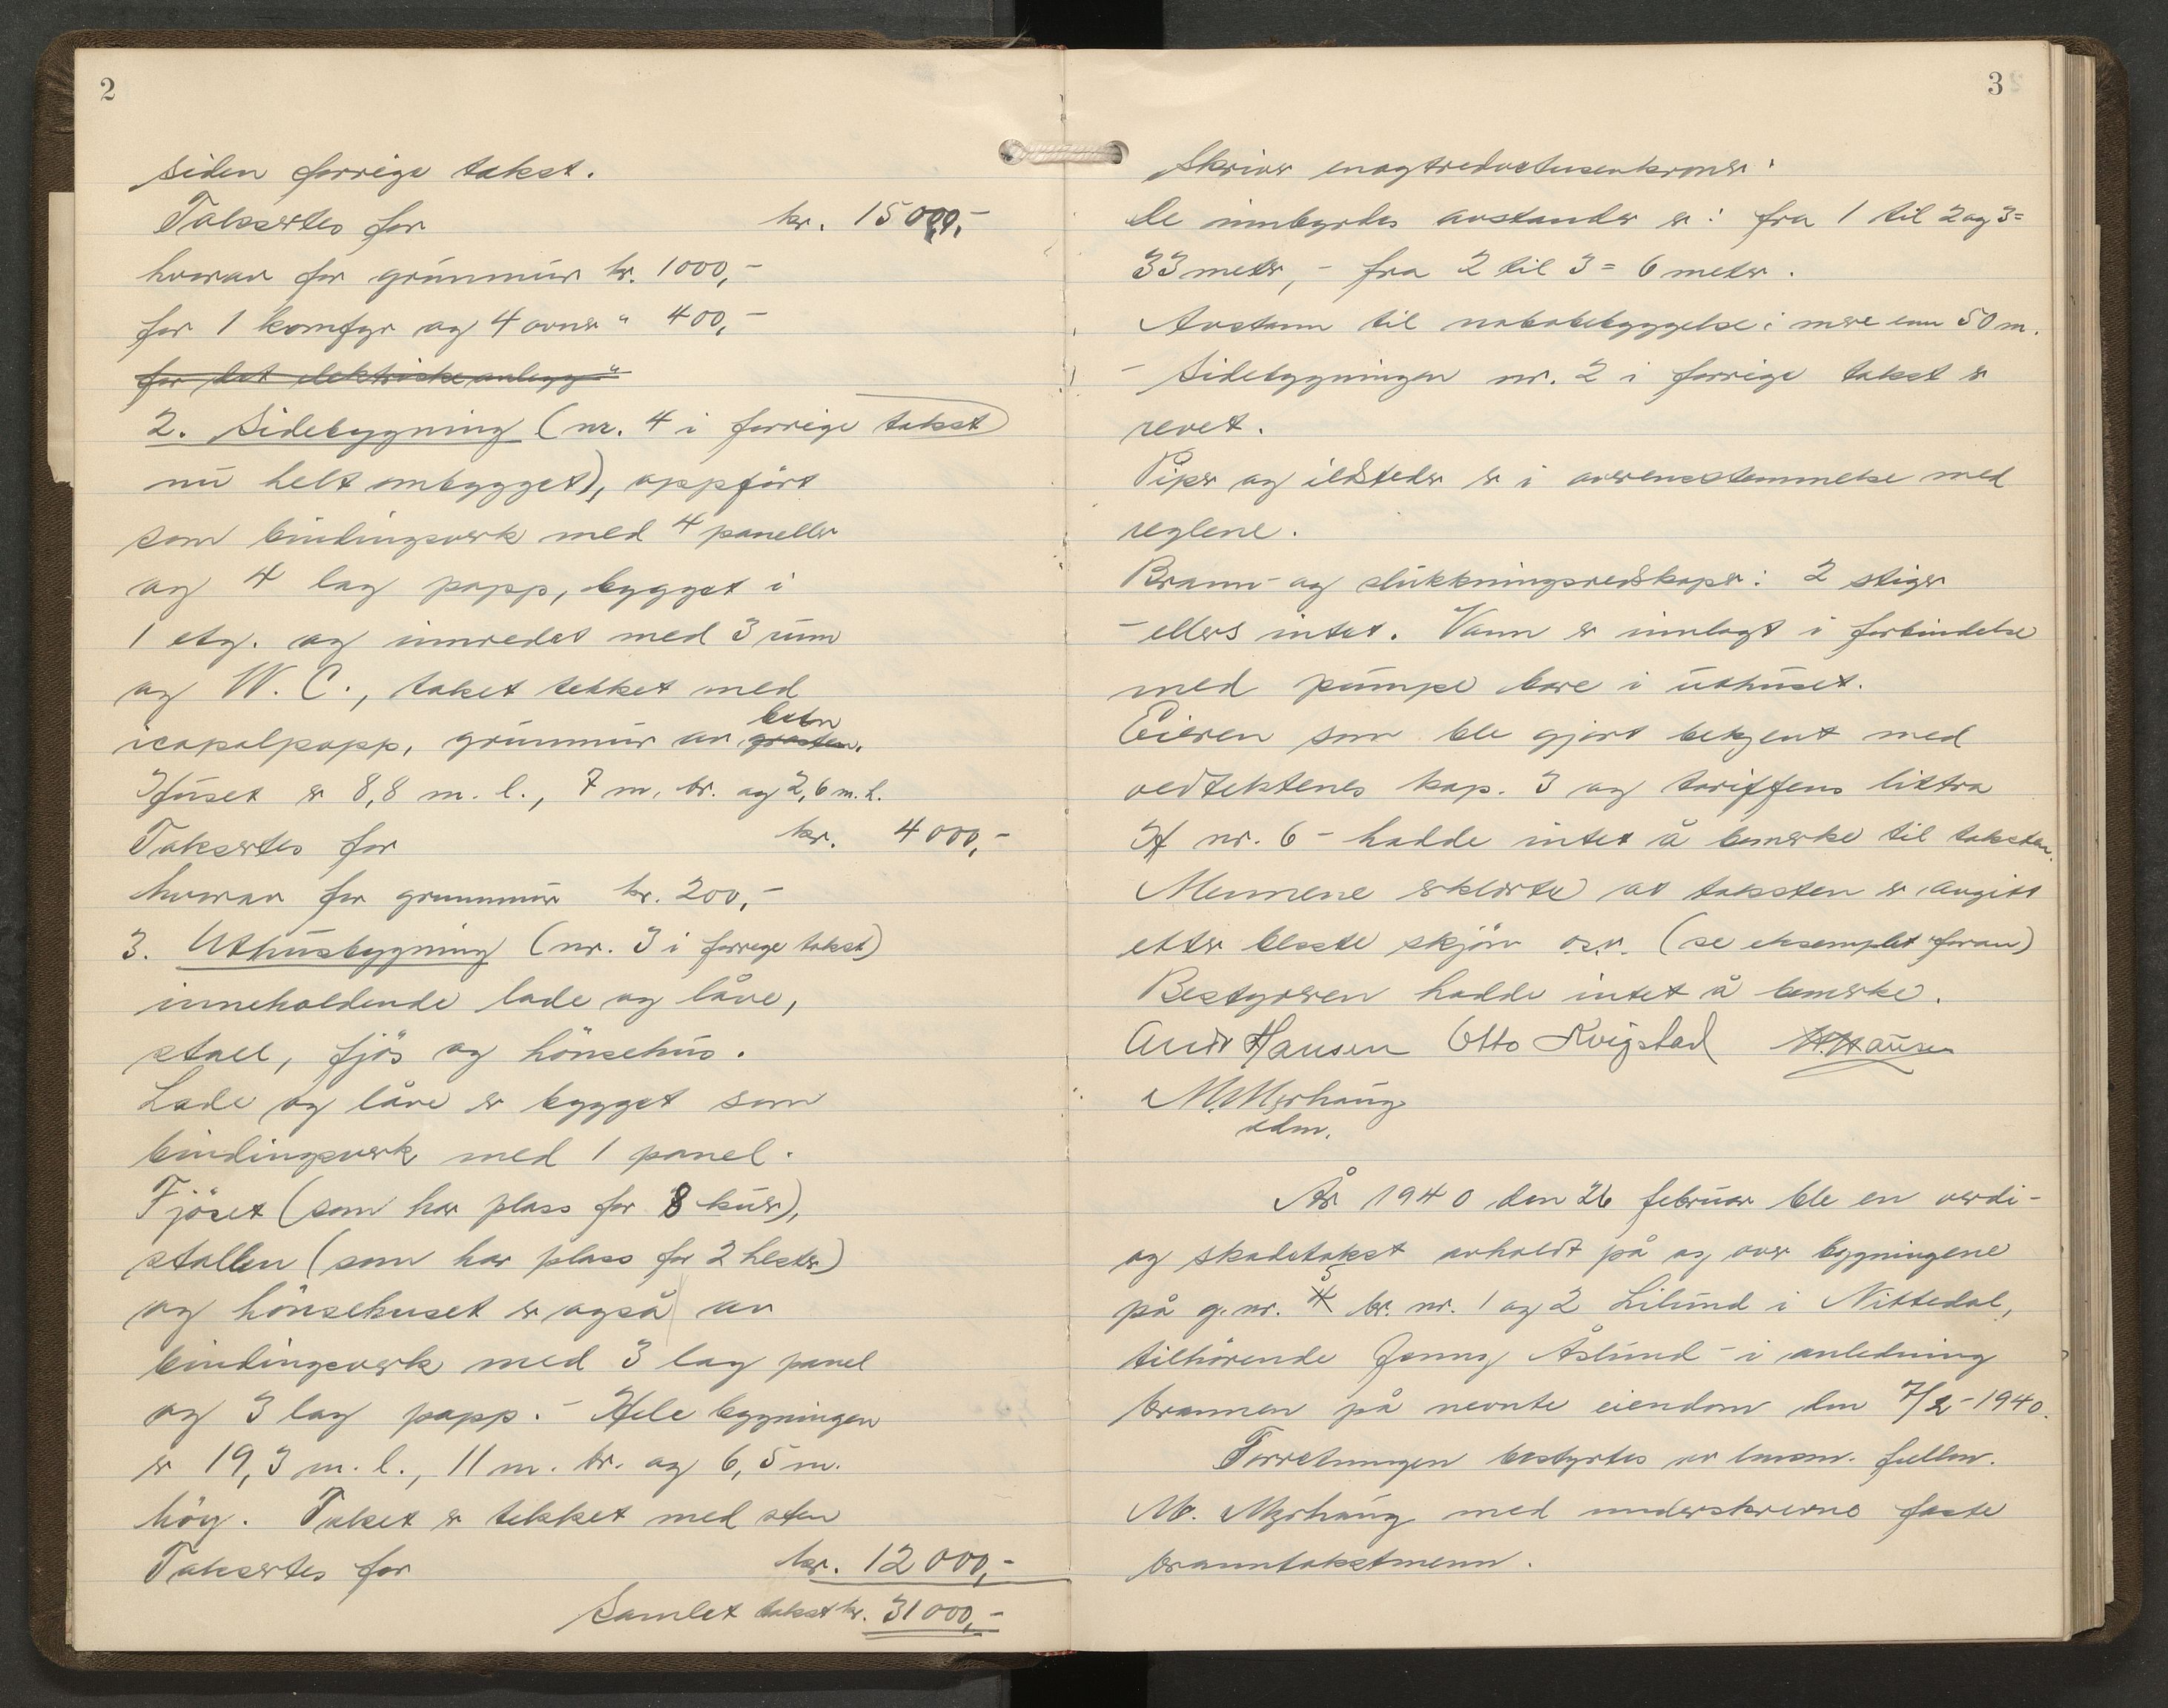 2
siden forrige takst.
Taksertes for kr. 15000,-
hvorav for grünmür kr. 1000,-
for 1 komfyr og 4 ovner " 400,-
for det elektriske anlegg "
2. Sidebygning (nr. 4 i forrige takst
nü helt ombygget), oppfört
som bindingsverk med 4 paneller
og 4 lag papp, bygget i
1 etg. og innredet med 3 rüm
og W. C., taket tekket med
icopalpapp, grünmür av betn
Hüset er 8,8 m. l., 7 m. br. og 2,6 m. h.
Taksertes for kr. 4000,-
hvorav for grunnmür kr. 200,-
3. Uthüsbygning (nr. 3 i forrige takst)
inneholdende lade og låve,
stall, fjös og hönsehüs.
Lade og låve er bygget som
bindingsverk med 1 panel.
Fjöset (som har plass for 8 küer),
stallen (som har plass for 2 hester)
og hönsehuset er også av
bindingsverk med 3 lag panel
og 3 lag papp. - Hele bygningen
er 19,3 m. l., 11 m. br. og 6,5 m.
höy. Taket er tekket med sten
Taksertes for kr. 12000,-
Samlet takst kr. 31000,-
3
Skriver enogtredvetusenkroner:
De innbyrdes avstander er: fra 1 til 2 og 3 =
33 meter, - fra 2 til 3 = 6 meter.
Avstann til nabobebyggelse: mere enn 50 m.
- Sidebygningen nr. 2 i forrige takst er
revet.
Piper og ildsteder er i overensstemmelse med
reglene.
Brann- og slükkningsredskaper: 2 stiger
- ellers intet. Vann er innlagt i forbindelse
med pümpe bare i üthüset.
Eieren som ble gjort bekjent med
vedtektenes kap. 3 og tariffens littra
H nr. 6 - hadde intet å bemerke til taksten.
Mennene erklærte at taksten er avgitt
etter beste skjönn o.s.v. (se eksemplet foran)
Bestyreren hadde intet å bemerke.
Hansen Otto Kvigstad H. Hansen
M. Myrhaüg
adm.
År 1940 den 26 februar ble en verdi-
og skadetakst avholdt på og over bygningene
på g. nr. 5 br. nr. 1 og 2 Lilünd i Nittedal,
tilhörende Jenny Åslünd - i anledning
brannen på nevnte eiendom den 7/2-1940.
Forretningen bestyrtes av lensm. fullm.
M. Myrhaüg med underskrevne faste
branntakstmenn.